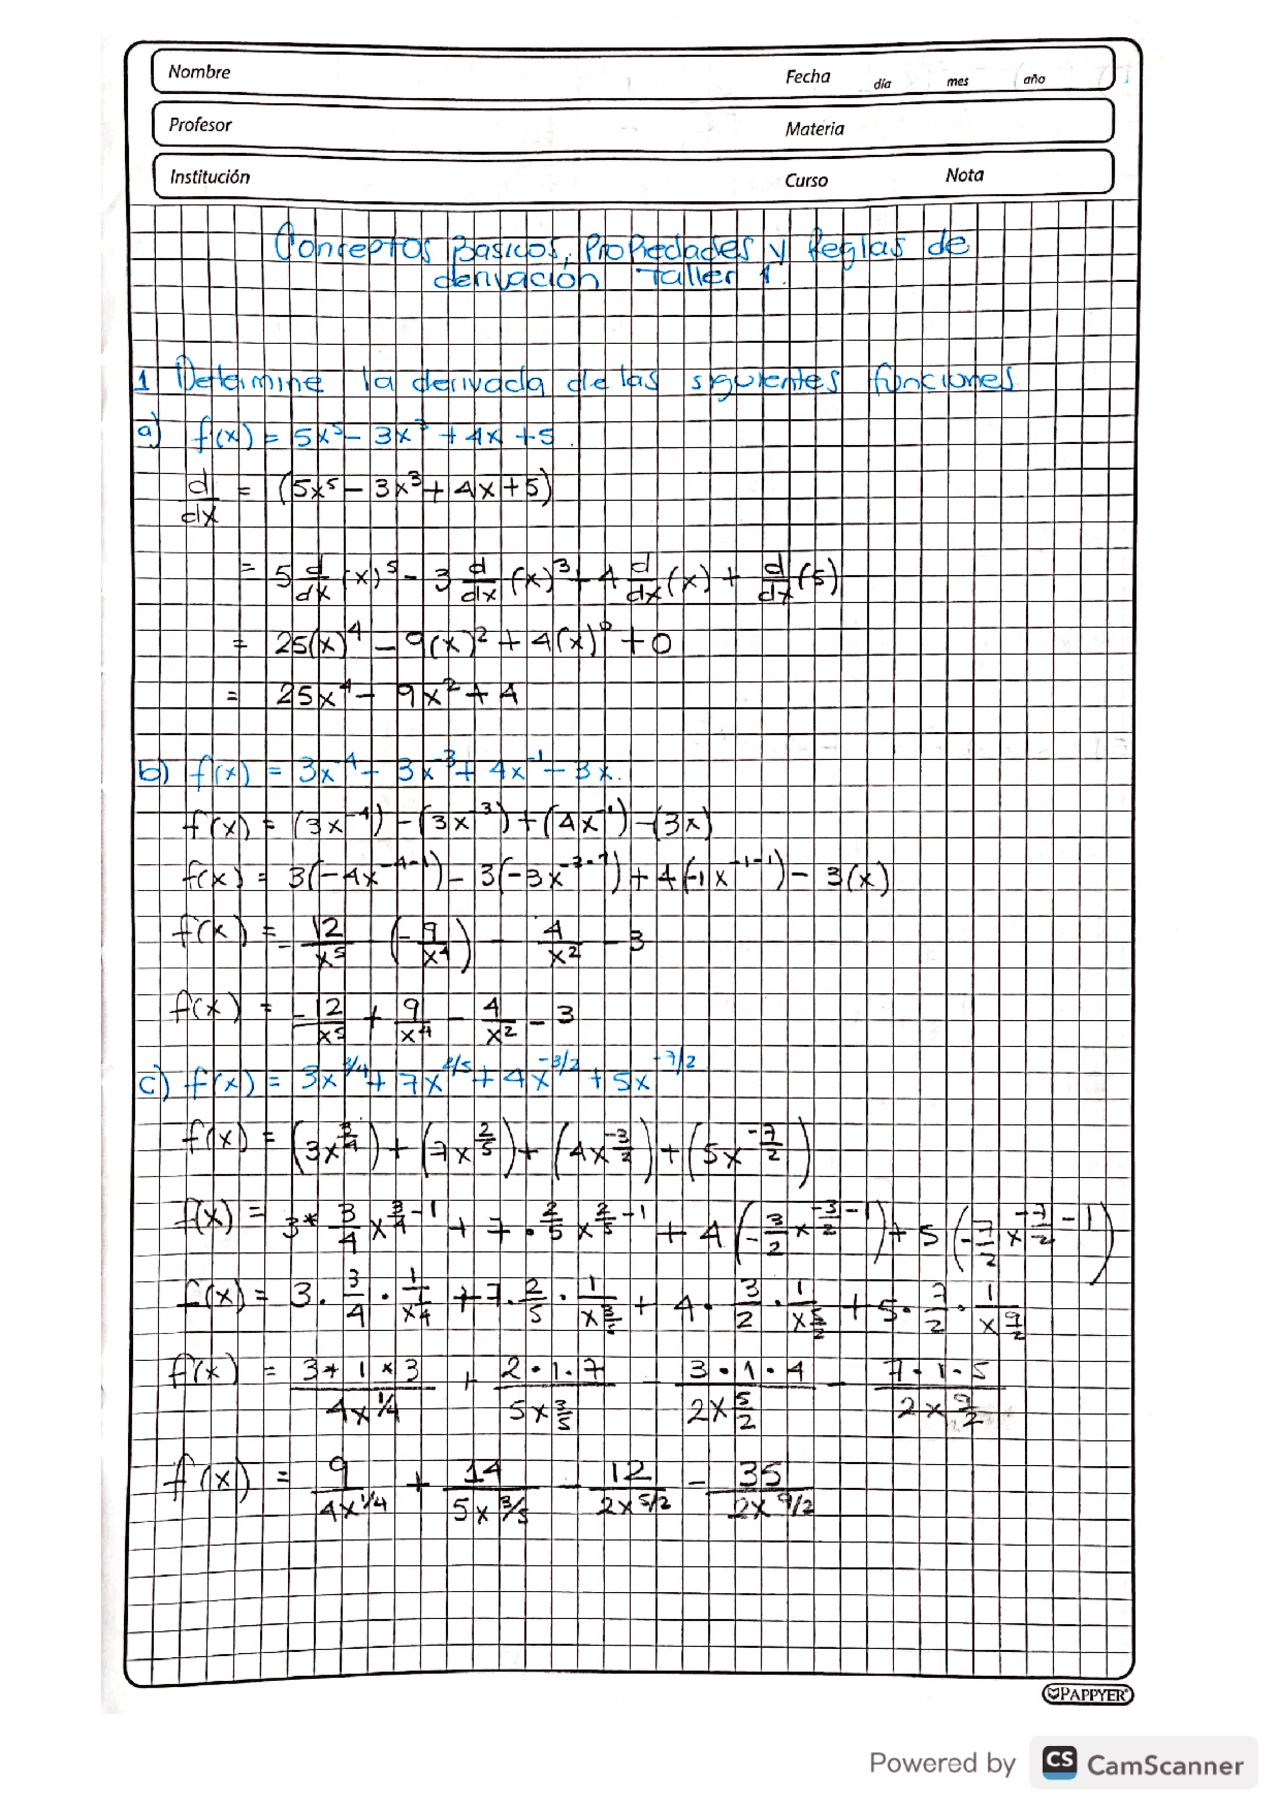 Nombre Fecha día mes año
Profesor Materia
Institución Curso Nota
Conceptos Basicos, Propiedades y Reglas de
derivación Taller 1.
1 Determine la derivada de las siguientes funciones
a) f(x) = 5x⁵ - 3x³ + 4x + 5.
d/dx = (5x⁵ - 3x³ + 4x + 5)
= 5 d/dx (x)⁵ - 3 d/dx (x)³ + 4 d/dx (x) + d/dx (5)
= 25(x)⁴ - 9(x)² + 4(x)⁰ + 0
= 25x⁴ - 9x² + 4
b) f(x) = 3x⁻⁴ - 3x⁻³ + 4x⁻¹ - 3x.
f(x) = (3x⁻⁴) - (3x⁻³) + (4x⁻¹) - (3x)
f(x) = 3(-4x⁻⁴⁻¹) - 3(-3x⁻³⁻¹) + 4(-1x⁻¹⁻¹) - 3(x)
f(x) = - 12/x⁵ - (-9/x⁴) - 4/x² - 3
f(x) = -12/x⁵ + 9/x⁴ - 4/x² - 3
c) f(x) = 3x^3/4 + 7x^2/5 + 4x^-3/2 + 5x^-7/2
f(x) = (3x^3/4) + (7x^2/5) + (4x^-3/2) + (5x^-7/2)
f(x) = 3* 3/4 x^(3/4 - 1) + 7 · 2/5 x^(2/5 - 1) + 4 (-3/2 x^(-3/2 - 1)) + 5 (-7/2 x^(-7/2 - 1))
f(x) = 3 · 3/4 · 1/x^1/4 + 7 · 2/5 · 1/x^3/5 + 4 · 3/2 · 1/x^5/2 + 5 · 7/2 · 1/x^9/2
f(x) = 3*1*3/4x^1/4 + 2·1·7/5x^3/5 - 3·1·4/2x^5/2 - 7·1·5/2x^9/2
f(x) = 9/4x^1/4 + 14/5x^3/5 - 12/2x^5/2 - 35/2x^9/2
PAPPYER
Powered by CS CamScanner